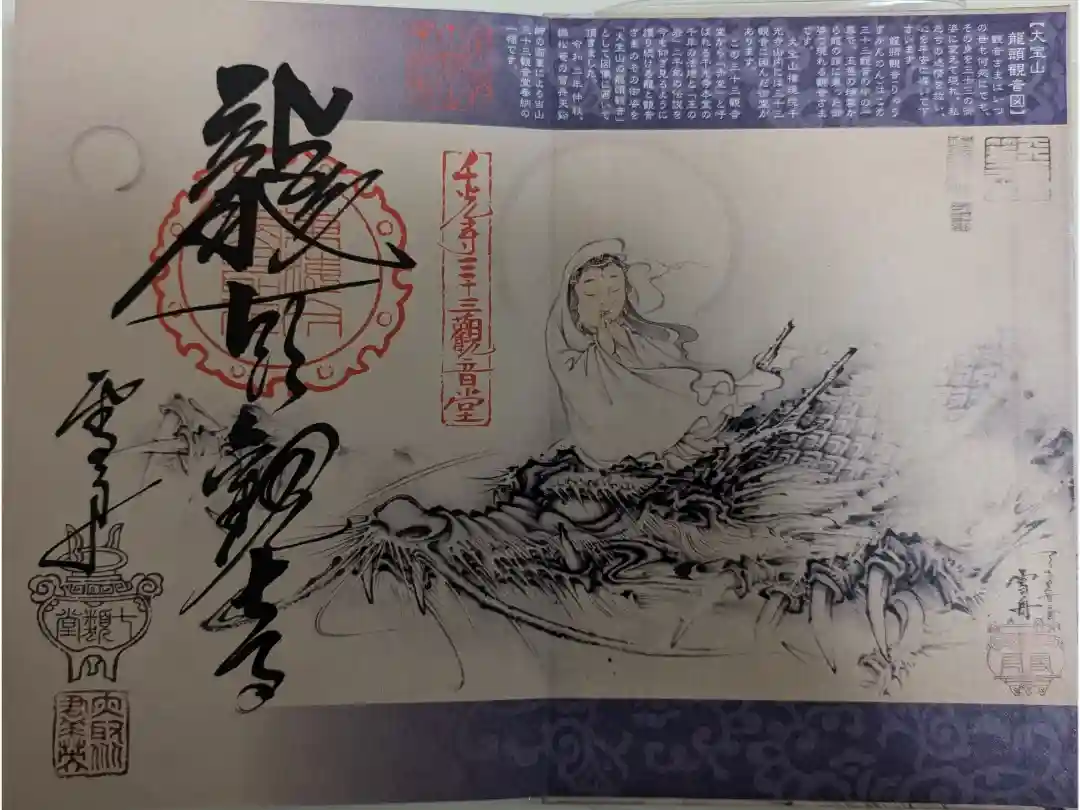 【大宝山
龍頭観音図】
観音さまはいつ
の世も何処にでも
その身を三十三の御
姿に変えて現れ、私
たちの
心を平安に導いて下
さいます。
龍頭観音(りゅう
ずかんのん)はこの
三十三観音の中の一
尊で、五色の瑞雲か
ら龍の頭に乗った御
姿で現れる観音さま
です。
大宝山権現院千
光寺山内には三十三
観音に因んだ御堂が
あります。
この三十三観音
堂から「赤堂」と呼
ばれる千光寺本堂の
千年の法燈と「玉の
岩」二千年の伝説を
今も仰ぎ見るように
護り続ける龍と観音
さまのその御姿を
「大宝山の龍頭観音」
として図像に画いて
頂きました。
令和三年仲秋
師の画筆による当山
三十三観音堂奉納の
一幅です。
千光寺三十三觀音堂
龍頭觀音
七類堂